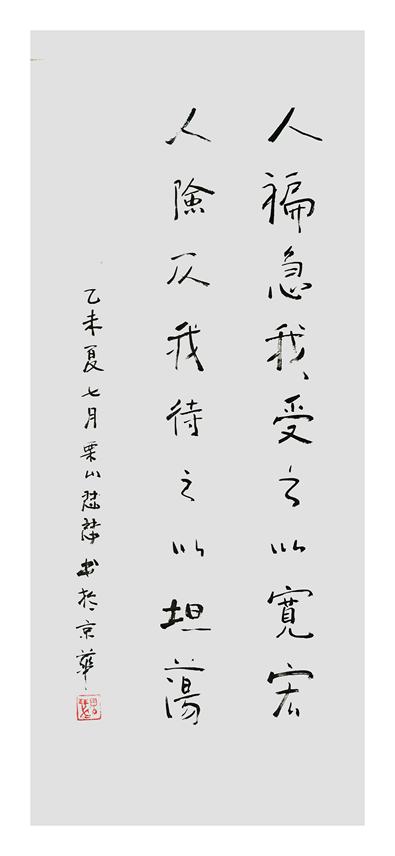 人褊急我受之以寬宏
人險仄我待之以坦蕩
乙未夏七月栗山书於京華